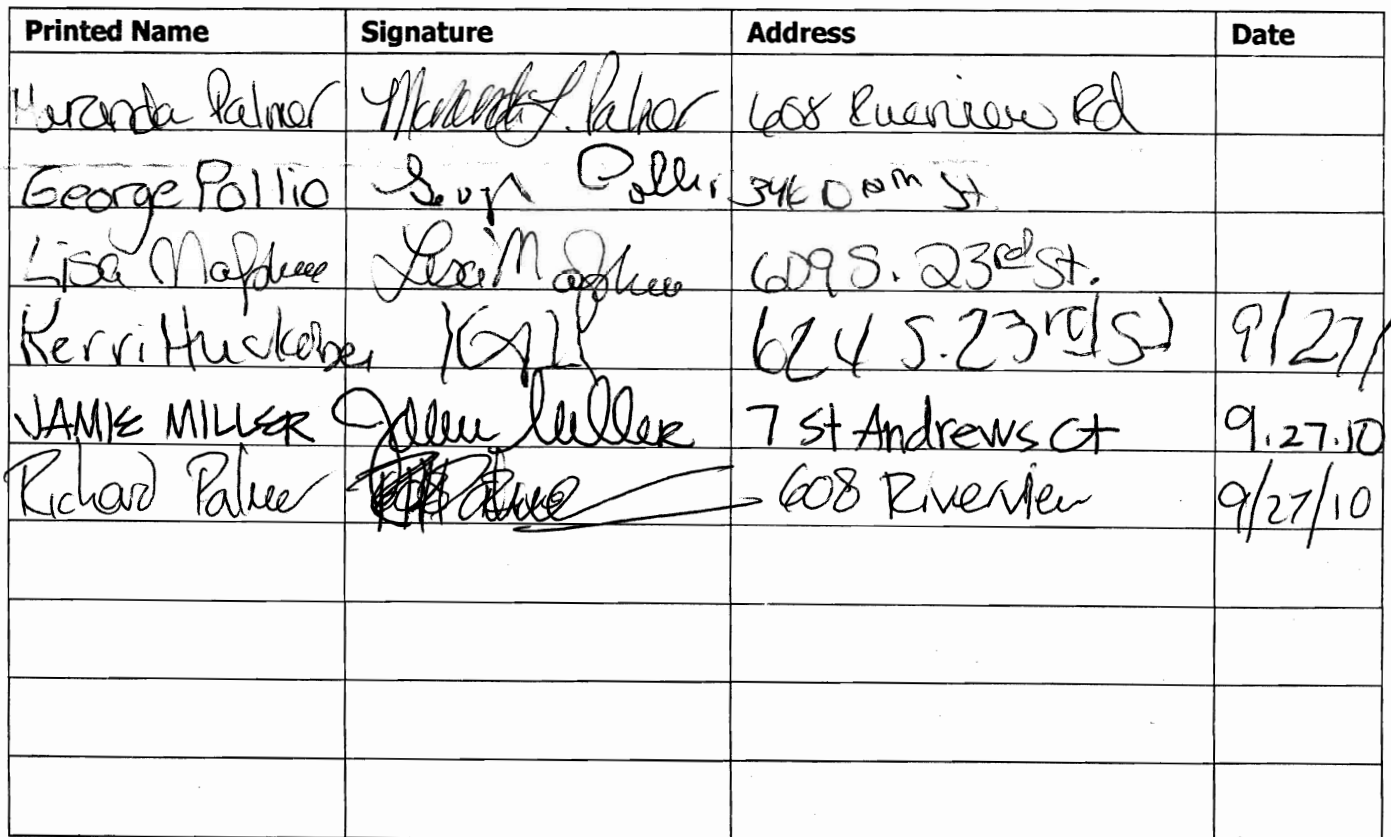 Printed Name Signature Address Date
Meranda Palmer Palmer 608 Riverview Rd
George Pollio St
Lisa Lisa 609 S. 23rd St.
Kerri Huckober 624 S. 23rd St 9/27/
JAMIE MILLER Jamie Miller 7 St Andrews Ct 9.27.10
Richard Palmer 608 Riverview 9/27/10